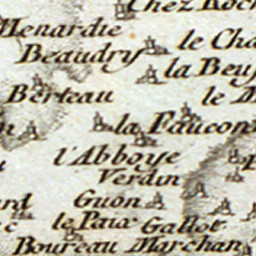 Chez Roch
Menardie
le Cha
Beaudry
la Beuf
Berteau
le M
la Faucon
l'Abboye
Verdin
Guon
le Paix Gallot
Boureau Marchan